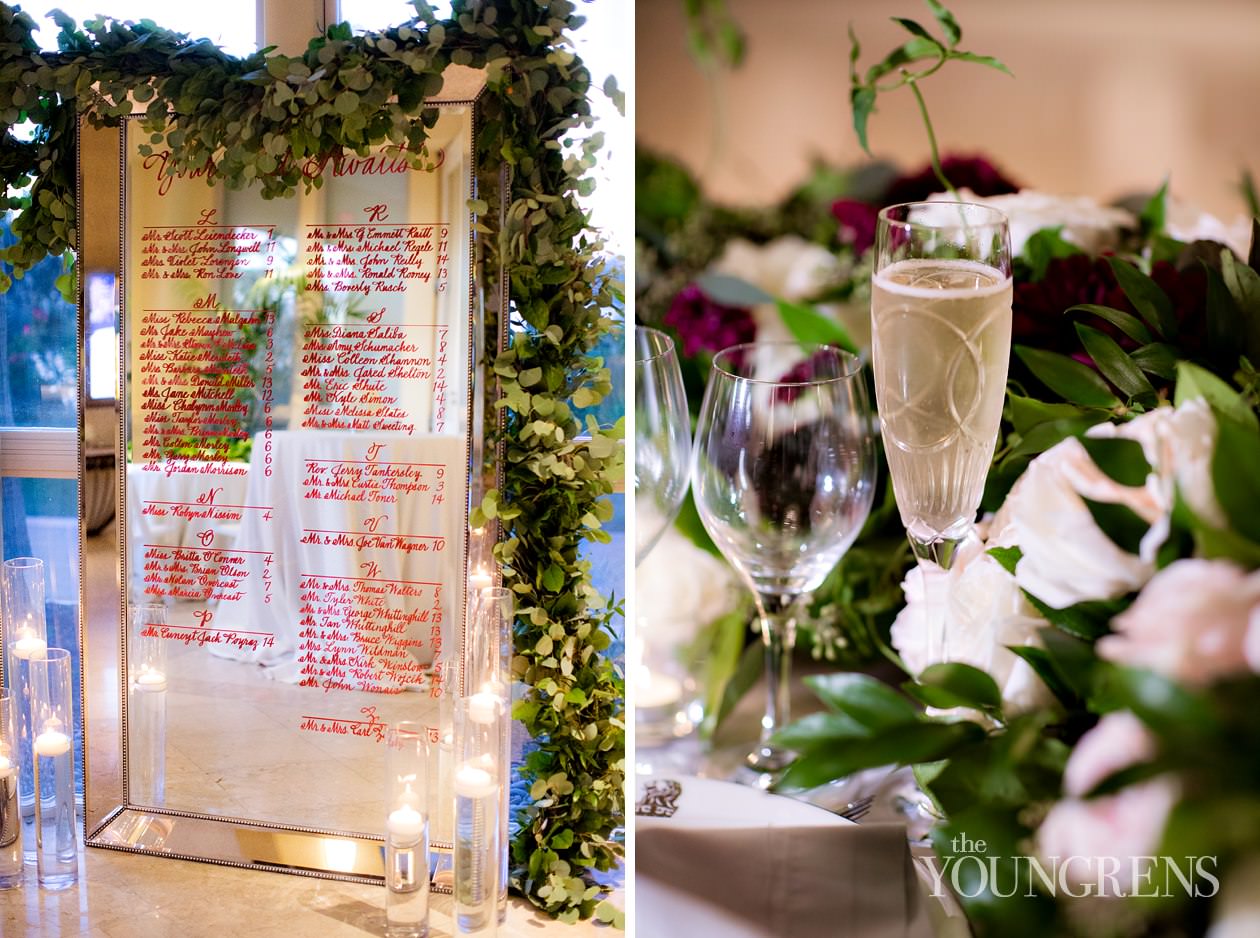 Awaits
L
Mr. Scott Leiendecker 1
Mr. & Mrs. John Longwell 11
Mrs. Violet Lorenzen 9
Mr. & Mrs. Ron Love 11
M
Miss Rebecca Malzahn 13
Mr. Jake Mayhew 6
Mr. & Mrs. 3
Miss Katie Meredith 2
Mrs. Barbara 5
Mr. & Mrs. Donald Miller 13
Ms. Jane Mitchell 12
Miss Chalynn Morley 6
Miss Taylor Morley 6
Mr. & Mrs. Brian Morley 6
Mr. Colton Morley 6
Mr. Garry Morley 6
Mr. Jordan Morrison 6
N
Miss Robyn Nissim 4
O
Miss Britta O'Connor 4
Mr. & Mrs. Brian Olson 2
Mr. Nolan Overcast 7
Mrs. Marcia Overcast 5
P
Mr. Cuneyt Jack Poyraz 14
R
Mr. & Mrs. G Emmett Raitt 9
Mr. & Mrs. Michael Regele 11
Mr. & Mrs. John Reilly 14
Mr. & Mrs. Ronald Rooney 13
Mrs. Beverly Rusch 5
S
Mrs. Diana Saliba 7
Mrs. Amy Schumacher 8
Miss Colleen Shannon 4
Mr. & Mrs. Jared Shelton 2
Mr. Eric Shute 14
Mr. Kyle Simon 4
Miss Melissa States 8
Mr. & Mrs. Matt Sweeting 7
T
Rev. Jerry Tankersley 9
Mr. & Mrs. Curtis Thompson 3
Mr. Michael Toner 14
V
Mr. & Mrs. Joe Van Wagner 10
W
Mr. & Mrs. Thomas Walters 8
Mr. Tyler White 2
Mr. & Mrs. George Whittinghill 13
Mr. Ian Whittinghill 13
Mr. & Mrs. Bruce Wiggins 13
Mrs. Lynn Wildman 7
Mr. & Mrs. Kirk Winslow 5
Mr. & Mrs. Robert Wojcik 14
Mr. John Wonais 10
Z
Mr. & Mrs. Carl 3
the
YOUNGRENS